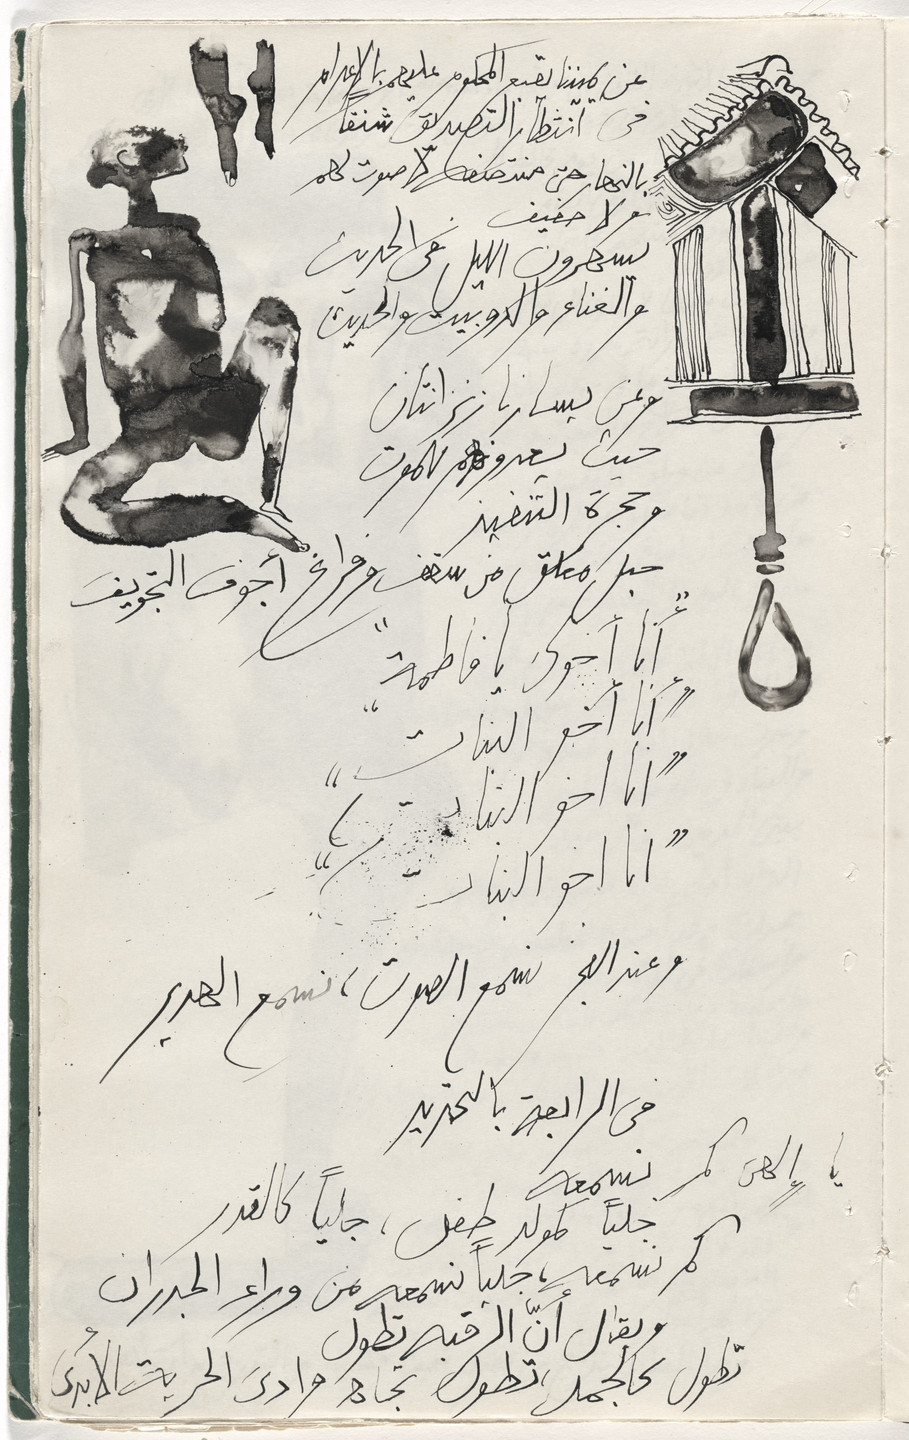 عن يميننا يقبع المحكوم عليهم بالإعدام
في انتظار التصديق شنقاً
بالنهار حتى منتصفه لا صوت لهم
ولا حفيف
يسهرون الليل في الحديث
والغناء والدوبيت والحديث
وعن يسارنا زنزانتان
حيث يعدونهم للموت
وحجرة التنفيذ
حبل معلق من سقف وفراغ أجوف التجويف
"أنا أخوك يا فاطمة"
"أنا أخو البنات"
"انا اخو البنات"
"انا اخو البنات"
وعند الفجر نسمع الصوت، نسمع الهدير
في الرابعة بالتحديد
يا إلهى كم نسمعه
جلياً كمولد طفل، جلياً كالقدر
كم نسمعه، جلياً نسمعه من وراء الجدران
ويقال أنّ الرقبه تطول
تطول كالجمل، تطول تجاه وادى الحريت الأبدى